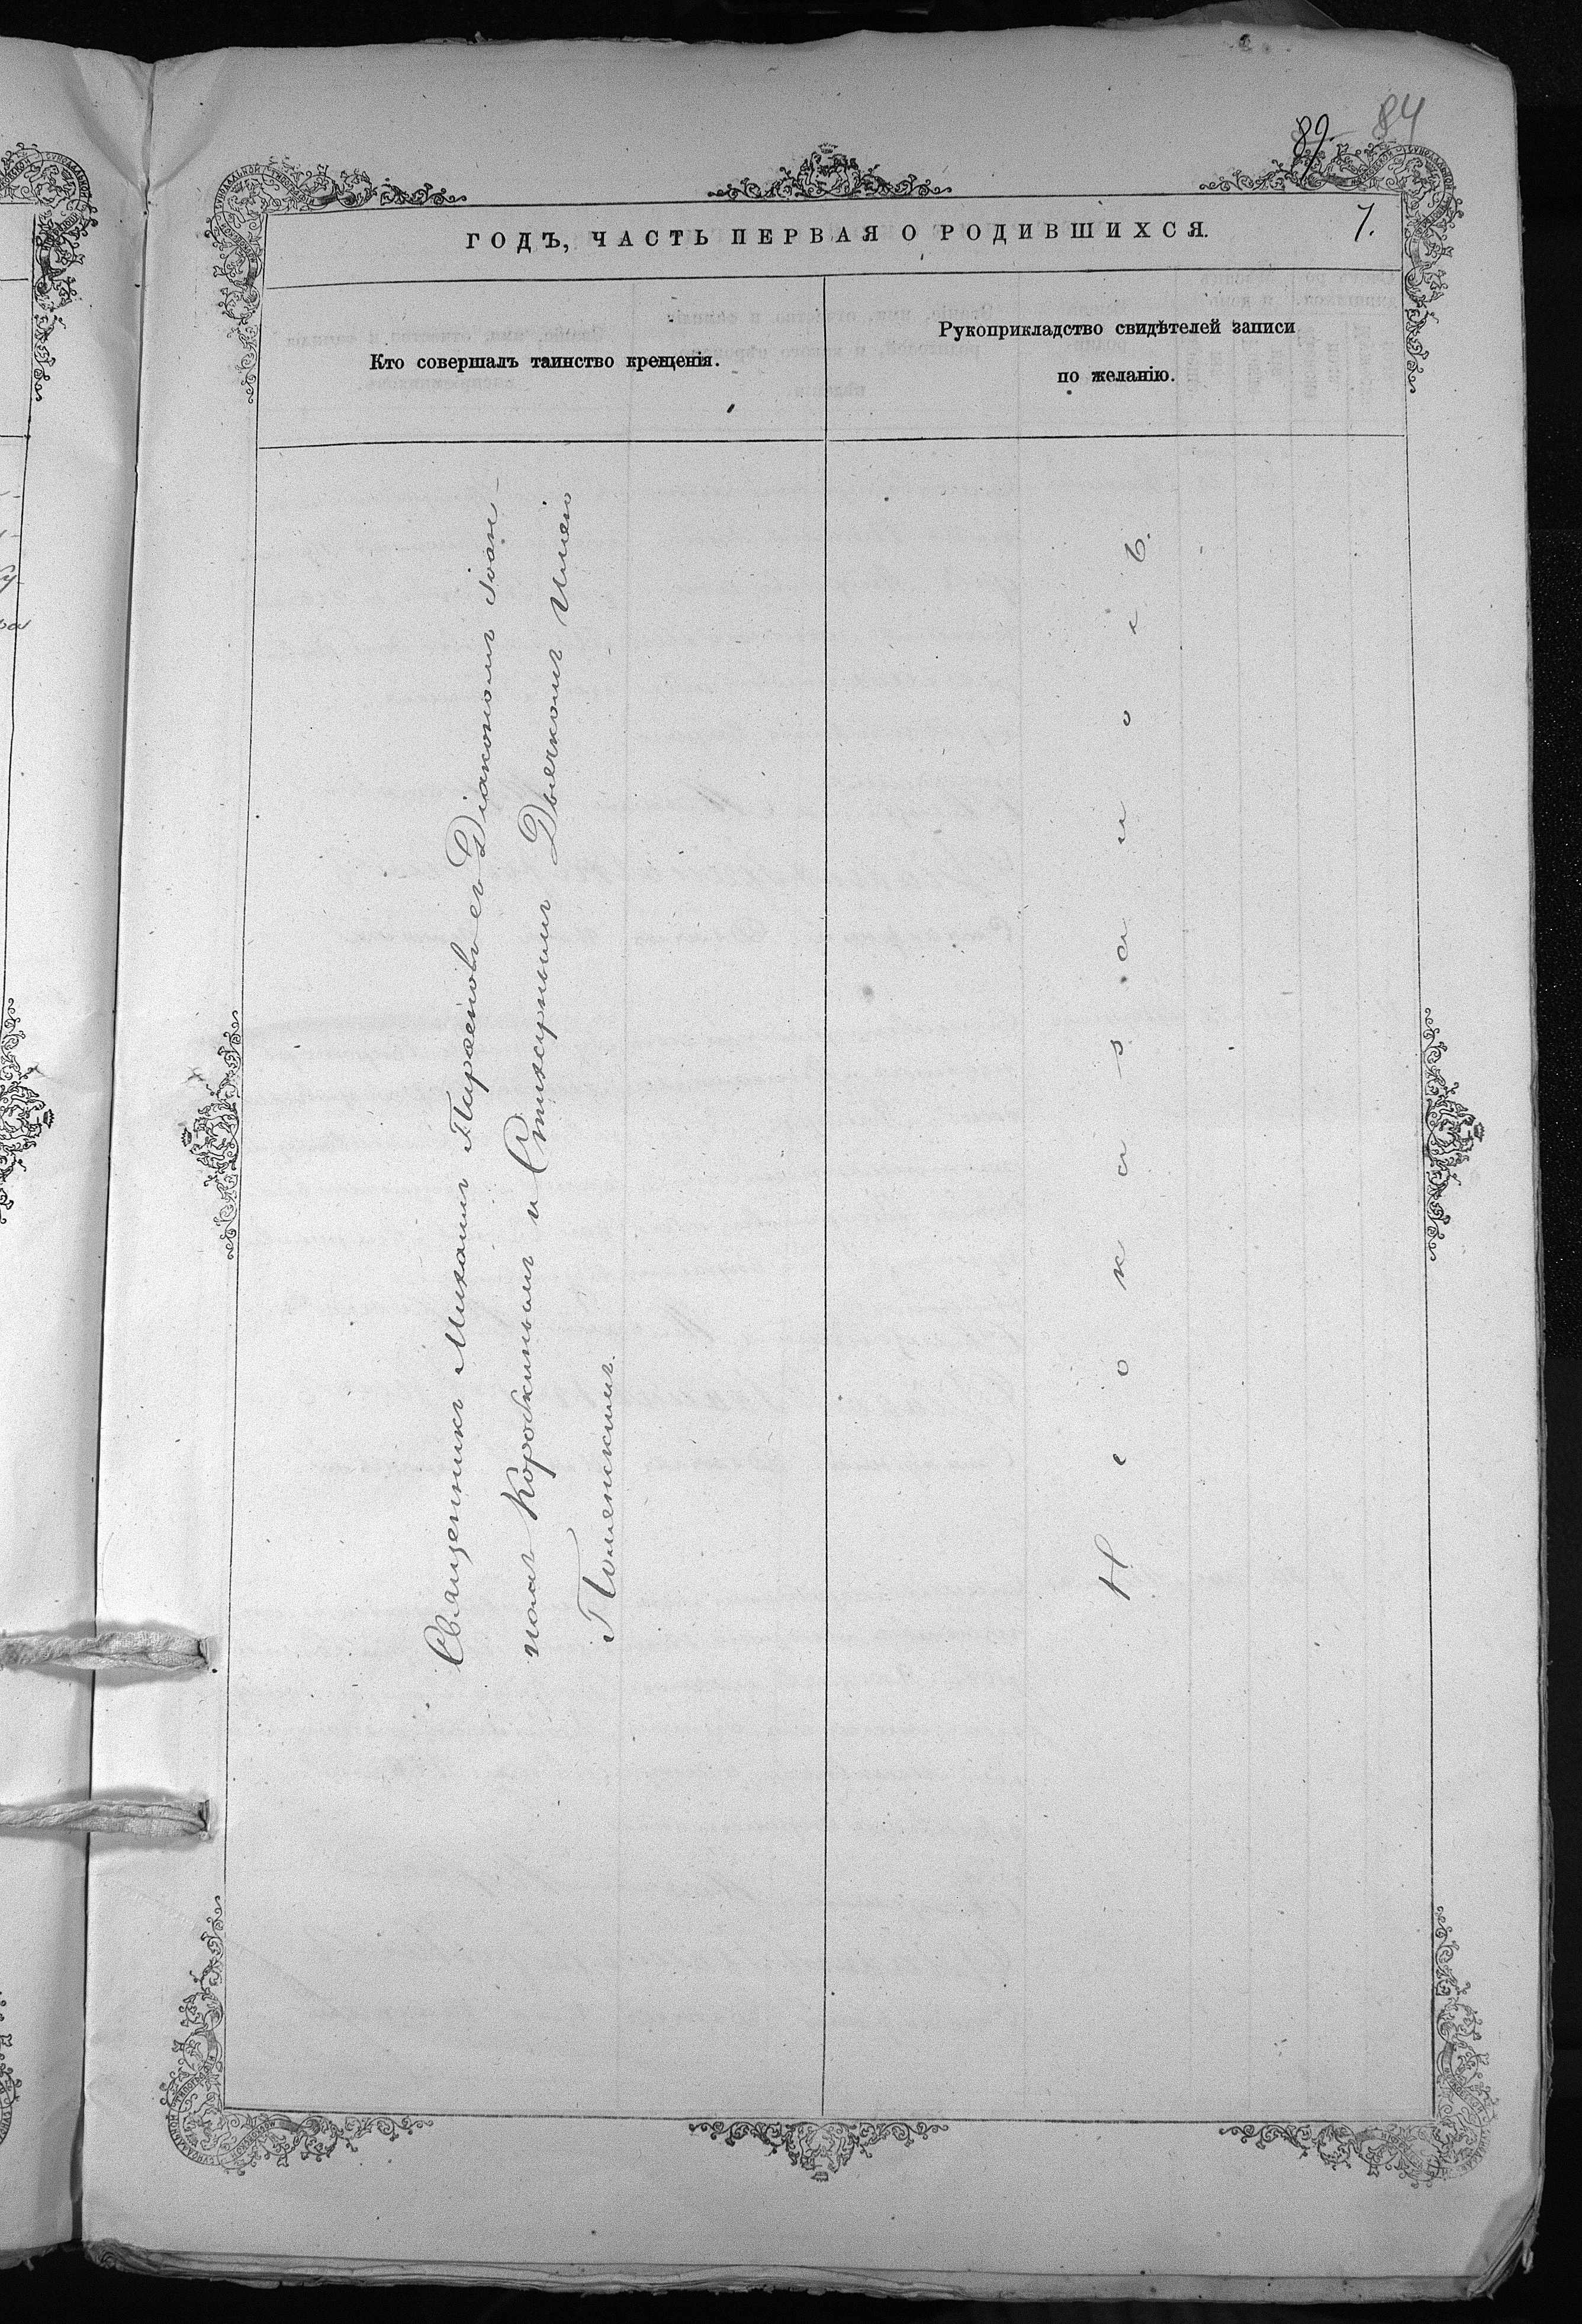 89. 84
ГОДЪ, ЧАСТЬ ПЕРВАЯ О РОДИВШИХСЯ. 7.
Кто совершалъ таинство крещенія.
Рукоприкладство свидѣтелей записи
по желанію.
Священникъ Михаилъ съ Діакономъ Іоан-
номъ Коробкинымъ и Стихарнымъ Дьячкомъ Иліею
Поменскимъ.
Н е о к а з а н о с ь.